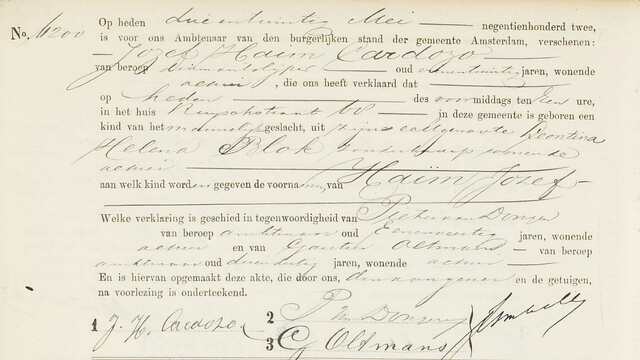 No. 6200
Op heden twee en twintig Mei negentienhonderd twee,
is voor ons Ambtenaar van den burgerlijken stand der gemeente Amsterdam, verschenen:
Jozef Haim Cardozo
van beroep diamantslijper oud een en twintig jaren, wonende
alhier, die ons heeft verklaard dat
op heden des voormiddags ten een ure,
in het huis in deze gemeente is geboren een
kind van het mannelijk geslacht, uit zijne echtgenoote Leontina
Helena Blok zonder beroep wonende
alhier
aan welk kind worden gegeven de voornamen van Haïm Jozef
Welke verklaring is geschied in tegenwoordigheid van Pieter van Dongen
van beroep ambtenaar oud jaren, wonende
alhier en van Oltmans van beroep
ambtenaar oud jaren, wonende alhier
En is hiervan opgemaakt deze akte, die door ons, den aangever en de getuigen,
na voorlezing is onderteekend.
1 J. H. Cardozo
2 P van Dongen
3 G Oltmans